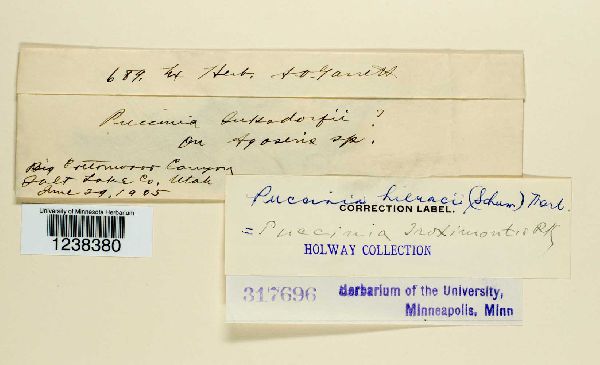 689. Ex Herb. A.O. Garrett.
Puccinia Suksdorfii ?
on Agoseris sp.
Big Cottonwood Canyon
Salt Lake Co., Utah
June 29, 1905
University of Minnesota Herbarium
1238380
Puccinia hieracii (Schum) Mart.
CORRECTION LABEL.
= Puccinia
HOLWAY COLLECTION
317696 Herbarium of the University,
Minneapolis, Minn